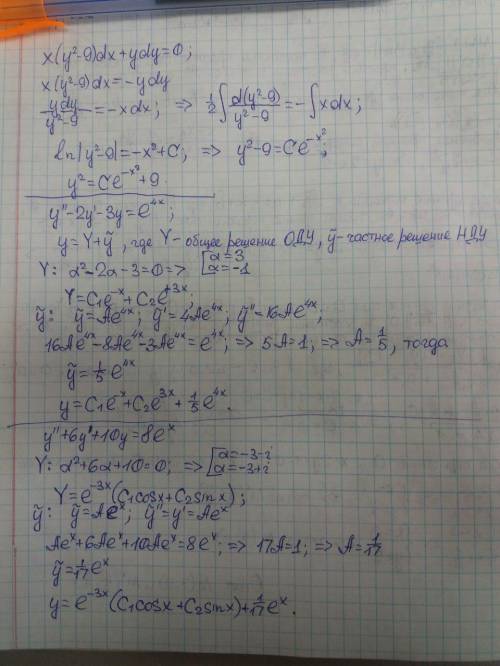 x(y²-9)dx+ydy=0;
x(y²-9)dx=-ydy
ydy/(y²-9)=-xdx; => 1/2∫d(y²-9)/(y²-9)=-∫xdx;
ln|y²-9|=-x²+C; => y²-9=Ce^{-x²};
y²=Ce^{-x²}+9
y''-2y'-3y=e^{4x};
y=Y+ỹ, где Y-общее решение ОДУ, ỹ-частное решение НДУ
Y: α²-2α-3=0=> [α=3 α=-1
Y=C₁e^{-x}+C₂e^{+3x};
ỹ: ỹ=Ae^{4x}; ỹ'=4Ae^{4x}; ỹ''=16Ae^{4x};
16Ae^{4x}-8Ae^{4x}-3Ae^{4x}=e^{4x}; => 5A=1; => A=1/5, тогда
ỹ=1/5e^{4x}
y=C₁e^{-x}+C₂e^{3x}+1/5e^{4x}.
y''+6y'+10y=8e^x
Y: α²+6α+10=0; => [α=-3-i α=-3+i
Y=e^{-3x}(C₁cosx+C₂sinx);
ỹ: ỹ=Ae^x; ỹ''=y'=Ae^x
Ae^x+6Ae^x+10Ae^x=8e^x; => 17A=1; => A=1/17
ỹ=1/17e^x
y=e^{-3x}(C₁cosx+C₂sinx)+1/17e^x.